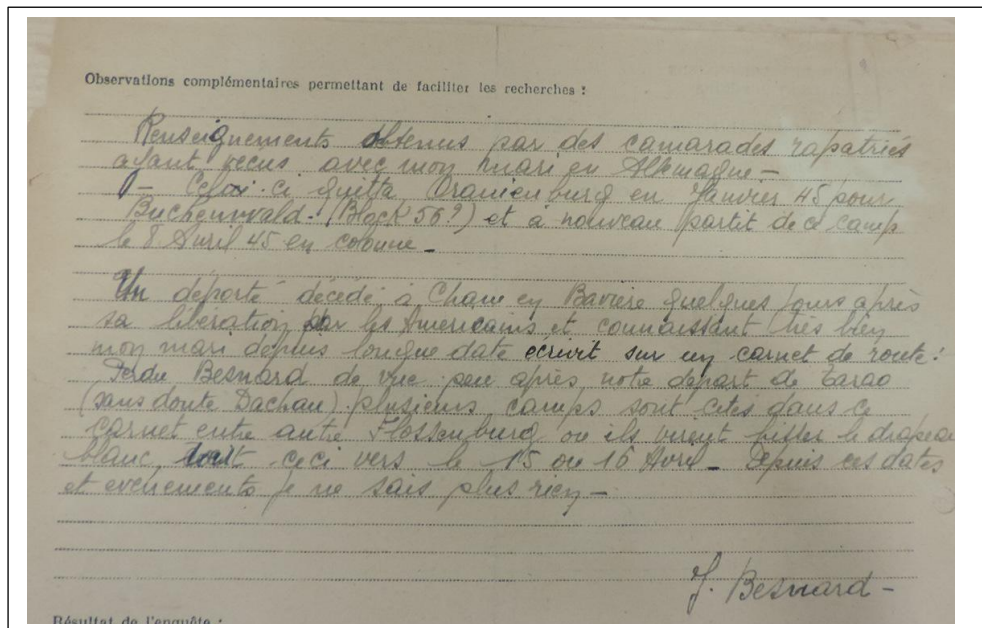 Observations complémentaires permettant de faciliter les recherches :
Renseignements obtenus par des camarades rapatriés
ayant vecus avec mon mari en Allemagne –
– Celui-ci quitta Oranienburg en Janvier 45 pour
Buchenwald (Block 56) et à nouveau partit de ce camp
le 8 Avril 45 en colonne –
Un déporté décédé à Cham en Bavière quelques jours après
sa libération par les Américains et connaissant très bien
mon mari depuis longue date écrivit sur un carnet de route :
Perdu Besnard de vue peu après notre départ de
(sans doute Dachau) plusieurs camps sont cités dans ce
carnet entre autre Flossenburg ou ils virent hisser le drapeau
blanc, tout ceci vers le 15 ou 16 Avril – Depuis ces dates
et evenements je ne sais plus rien –
J. Besnard –
Résultat de l'enquête :